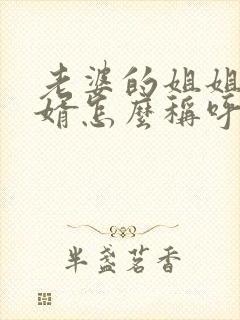 老婆的姐姐
婿怎麼稱呼
半盞茗香